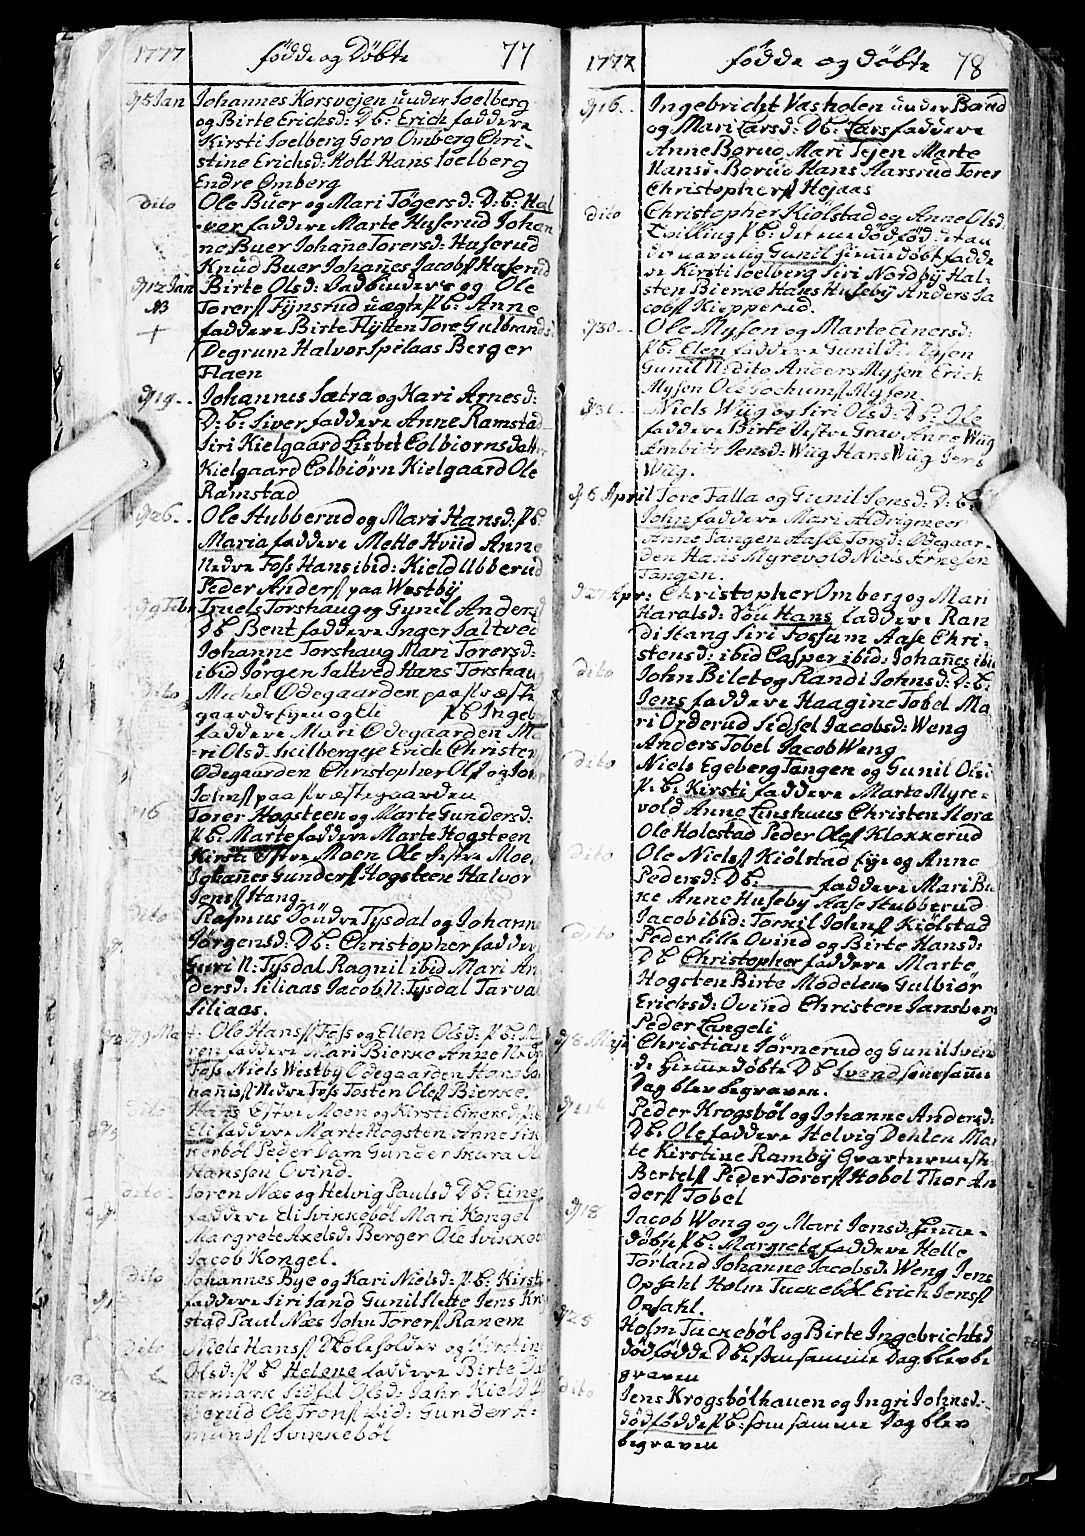 1777 fødde og Døbte 77
d 5 Jan Johannes Korsvejen under Soelberg
og Birte Erichsd: D.b: Erich faddere
Kirsti Soelberg Goro Omberg Chri-
stine Erichsd: Holt Hans Soelberg
Endre Omberg
dito Ole Buer og Mari Tøgersd: D.b: Hal
-vor faddere Marte Huserud Johan
ne Buer Johane Torersd: Huserud
Knud Buer Johañes Jacobs Huserud
d 12 Jan Birte Olsd: og Ole
NB Torers Fijnsrud uægte p.b: Anne
faddere Birte Flytten Tore Gulbrands
Degrum Halvor Spilaas Berger
Flaen
d 19 Johannes Sætra og Kari Arnesd:
D.b: Siver faddere Anne Ramstad
Siri Kielgaard Lisbet Colbiornsdatter
Kielgaard Colbiørn Kielgaard Ole
Ramstad
d 26 Ole Stubberud og Mari Hansd: p.b:
Maria faddere Mette Hviid Anne
Nedre Foss Hans ibid: Kield Ubberud
Peder Anders paa Westbÿ
d 9 Febr Truels Torshaug og Gunil Andersd
D.b Bent faddere Inger Saltved
Johanne Torshaug Mari Torersd:
ibid Jørgen Saltved Hans Torshaug
dito Michel Ødegaarden paa Præste
gaards Eyen og Eli p.b Ingeb
faddere Mari Ødegaarden Ma
-ri Olsd: Skilbergeje Erich Christen
Ødegaarden Christopher Ols og
Johns paa Præstegaarden
16 Torer Hogsteen og Marte Gundersd:
p.b: Marte faddere Marte Hogsteen
Kirsti Østre Moen Ole Østre Moe
Johañes Gunders Hogsteen Halvor
Jens Hang
dito Rasmus Søndre Tysdal og Johann
Jørgensd: D.b: Christopher fadder
Guri N: Tysdal Ragnil ibid Mari An
dersd: Siliaas Jacob N: Tysdal Tarval
Siliaas.
Ole Hans Foss og Ellen Olsd: p.b:
ren faddere Mari Bierke Anne Nedr
Foss Niels Westby Ødegaarden Hans Jo
hañis Nedre Foss Tosten Oles Bierke.
dito Hans Østre Moen og Kirsti Einersd: p.b
Eli faddere Marte Hogsten Anne
kerbøl Peder Dam Gunder Skara Ol
Hanssøn Ovind.
dito Søren Næs og Helvig Paulsd D.b: Einer
faddere Eli Svikkebøl Mari Kongel
Margrete Axelsd: Berger Ole Svikkeb
Jacob Kongel.
dito Johannes Bye og Kari Nielsd: p.b: Kirsti
faddere Siri Sand Gunil Slette Jens Kro
stad Paul Næs John Torers Ranem
dito Niels Hans Skoleholder og Kirstin
Olsd: p.b Helene faddere Birte
nemark Sidsel Olsd: Jahr Kield
Ole Trons ibid: Gunder A-
munds Svikkebøl
1777 fødde og døbte 78
d 16 Ingebricht Vasholen under Baud
og Mari Larsd: D.b: Lars faddere
Anne Borud Mari Tejen Marte
Hansd: Borud Hans Aarsrud Torer
Christophers Hejaas
dito Christopher Kiølstad og Anne Olsd.
Tvilling p.b: det ene dødfød det an
det navnlig Gunil hiemedøbt fadde
re Kirsti Soelberg Siri Nordbÿ Hal-
sten Bierke Hans Husebÿ Anders Ja
cobs Kiepperud.
d 30 Ole Mysen og Marte Einersd:
p.b: Elen faddere Gunil Mysen
Gunil N: dito Anders Mysen Erich
Mysen Ole Mysen
d 31 Niels Wiig og Siri Olsd: D.b: Ole
faddere Birte Vestre Grav Anne Wiig
Ambiør Jensd: Wiig Hans Wiig Jens
Wiig.
d 6 April Tore Falla og Gunil Jensd: D.b:
John faddere Mari Aldrigmeer
Anne Tangen Aase Torsd: Ødegaar-
den Hans Myrevold Niels Arnesen
Tangen.
d 27 Apr: Christopher Omberg og Mari
Haralsd: døu Hans faddere Ran
di Stang Siri Fossum Aase Chri-
stensd: ibid Casper ibid: Johañes ibid
dito John Bilet og Randi Johnsd: D.b:
Jens faddere Haagine Tobel Ma
ri Orderud Sidsel Jacobsd: Weng
Anders Tobel Jacob Weng
dito Niels Egeberg Tangen og Gunil Olsd
p.b: Kirsti faddere Marte Myre-
vold Anne Linshuus Christen Hora
Ole Holestad Peder Oles Klokkerud
dito Ole Niels Kiølstad Eye og Anne
Pedersd: D.b: faddere Mari Bu
ke Anne Husebÿ Aase Stubberud
Jacob ibid: Torkil Johns Kiølstad
dito Peder Lille Ovind og Birte Hansd:
D.b Christopher faddere Marte
Hogsten Birte Modelen Gulbiør
Erichsd: Ovind Christen Jansberg
Peder Langeli
d 8 Maji Christian Sørnerud og Gunil Sven
d: hiemedøbte D.b Svend som same
Dag blev begraven.
Peder Krogsbøl og Johanne Andersd:
D.b: Ole faddere Helvig Dehlen Mar
te Kirstine Rambÿ Gvarteermest:
Bertels Peder Torers Hobol Thor An
ders Tobel
d 18 Jacob Weng og Mari Jensd: hieme-
døbt p.b: Margrete faddere Helle
Torland Johanne Jacobsd: Weng Jens
Opsahl Holm Tuckebøl Erich Jens
Opsahl.
d 25 Holm Tuckebøl og Birte Ingebrichtsd
dødfødde D.b: som samme Dag blev be
graven
dito Jens Krogsbølhauen og Ingri Johnsd:
dødfødde p.b: som samme Dag blev
begraven